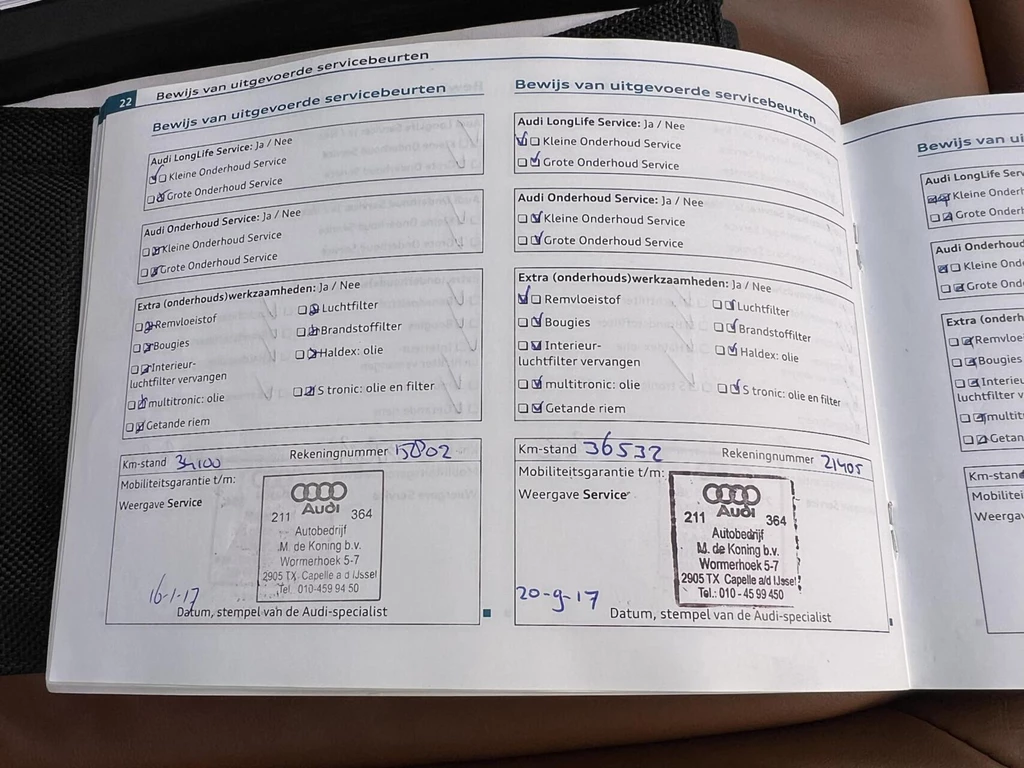 22 Bewijs van uitgevoerde servicebeurten
Bewijs van uitgevoerde servicebeurten
Audi LongLife Service: Ja / Nee
Kleine Onderhoud Service
Grote Onderhoud Service
Audi Onderhoud Service: Ja / Nee
Kleine Onderhoud Service
Grote Onderhoud Service
Extra (onderhouds)werkzaamheden: Ja / Nee
Remvloeistof
Luchtfilter
Bougies
Brandstoffilter
Interieur-
luchtfilter vervangen
Haldex: olie
multitronic: olie
S tronic: olie en filter
Getande riem
Km-stand 34100 Rekeningnummer 15802
Mobiliteitsgarantie t/m:
Weergave Service
Audi
211 364
Autobedrijf
M. de Koning b.v.
Wormerhoek 5-7
2905 TX Capelle a d IJssel
Tel. 010-459 94 50
16-1-17
Datum, stempel van de Audi-specialist
Bewijs van uitgevoerde servicebeurten
Audi LongLife Service: Ja / Nee
Kleine Onderhoud Service
Grote Onderhoud Service
Audi Onderhoud Service: Ja / Nee
Kleine Onderhoud Service
Grote Onderhoud Service
Extra (onderhouds)werkzaamheden: Ja / Nee
Remvloeistof
Luchtfilter
Bougies
Brandstoffilter
Interieur-
luchtfilter vervangen
Haldex: olie
multitronic: olie
S tronic: olie en filter
Getande riem
Km-stand 36532 Rekeningnummer 21405
Mobiliteitsgarantie t/m:
Weergave Service
Audi
211 364
Autobedrijf
M. de Koning b.v.
Wormerhoek 5-7
2905 TX Capelle a/d IJssel
Tel.: 010 - 45 99 450
20-9-17
Datum, stempel van de Audi-specialist
Bewijs van ui
Audi LongLife Serv
Kleine Onderh
Grote Onderh
Audi Onderhoud
Kleine Ond
Grote Ond
Extra (onderh
Remvloe
Bougies
Interieu
luchtfilter v
multit
Getan
Km-stand
Mobilitei
Weergav